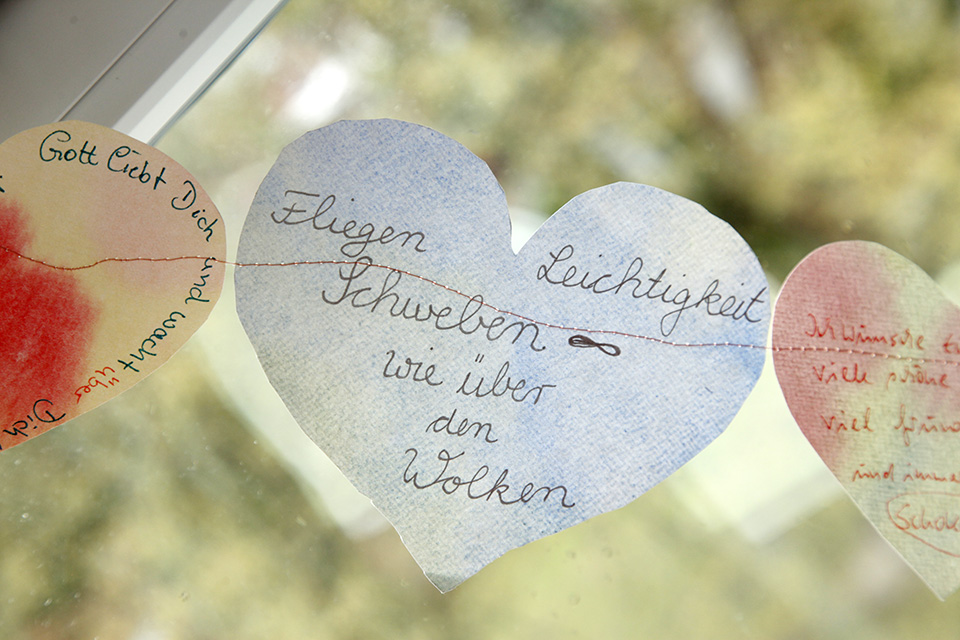 Gott liebt Dich und wacht über Dich
Fliegen
Leichtigkeit
Schweben ∞
wie über
den
Wolken
Ich wünsche
viele schöne
viel
und immer